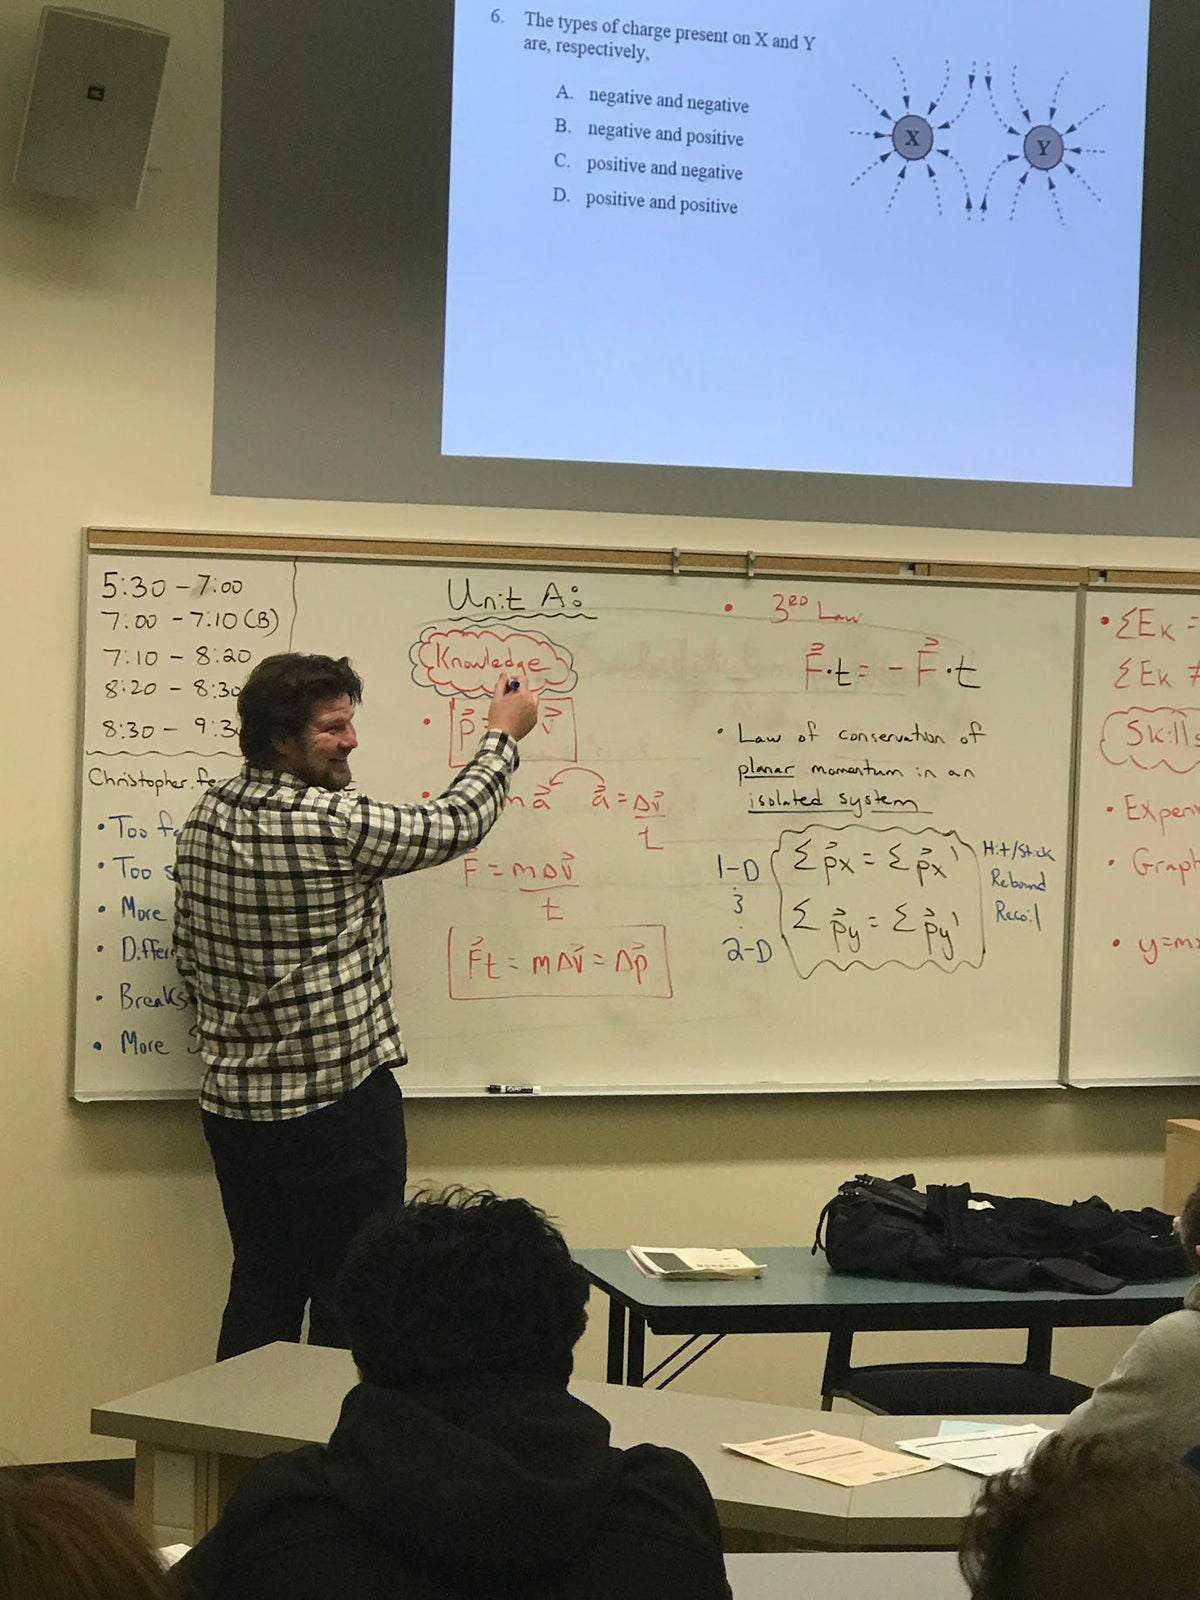 6. The types of charge present on X and Y
are, respectively,
A. negative and negative
B. negative and positive
C. positive and negative
D. positive and positive
X
Y
5:30 - 7:00
7:00 - 7:10 (B)
7:10 - 8:20
8:20 - 8:30
8:30 - 9:3
Christopher.
• Too
• Too
• More
•
• Breaks
• More
Unit A:
Knowledge
• p⃗ = v⃗
a⃗ a⃗ = Δv⃗
t
F⃗ = mΔv⃗
t
F⃗t = mΔv⃗ = Δp⃗
• 3RD Law
F⃗·t = - F⃗·t
• Law of conservation of
planar momentum in an
isolated system
1-D
2-D
Σp⃗x = Σp⃗x'
Σp⃗y = Σp⃗y'
Hit/Stick
Rebound
Recoil
• ΣEk =
ΣEk ≠
Skills
•
• Graph
• y=m